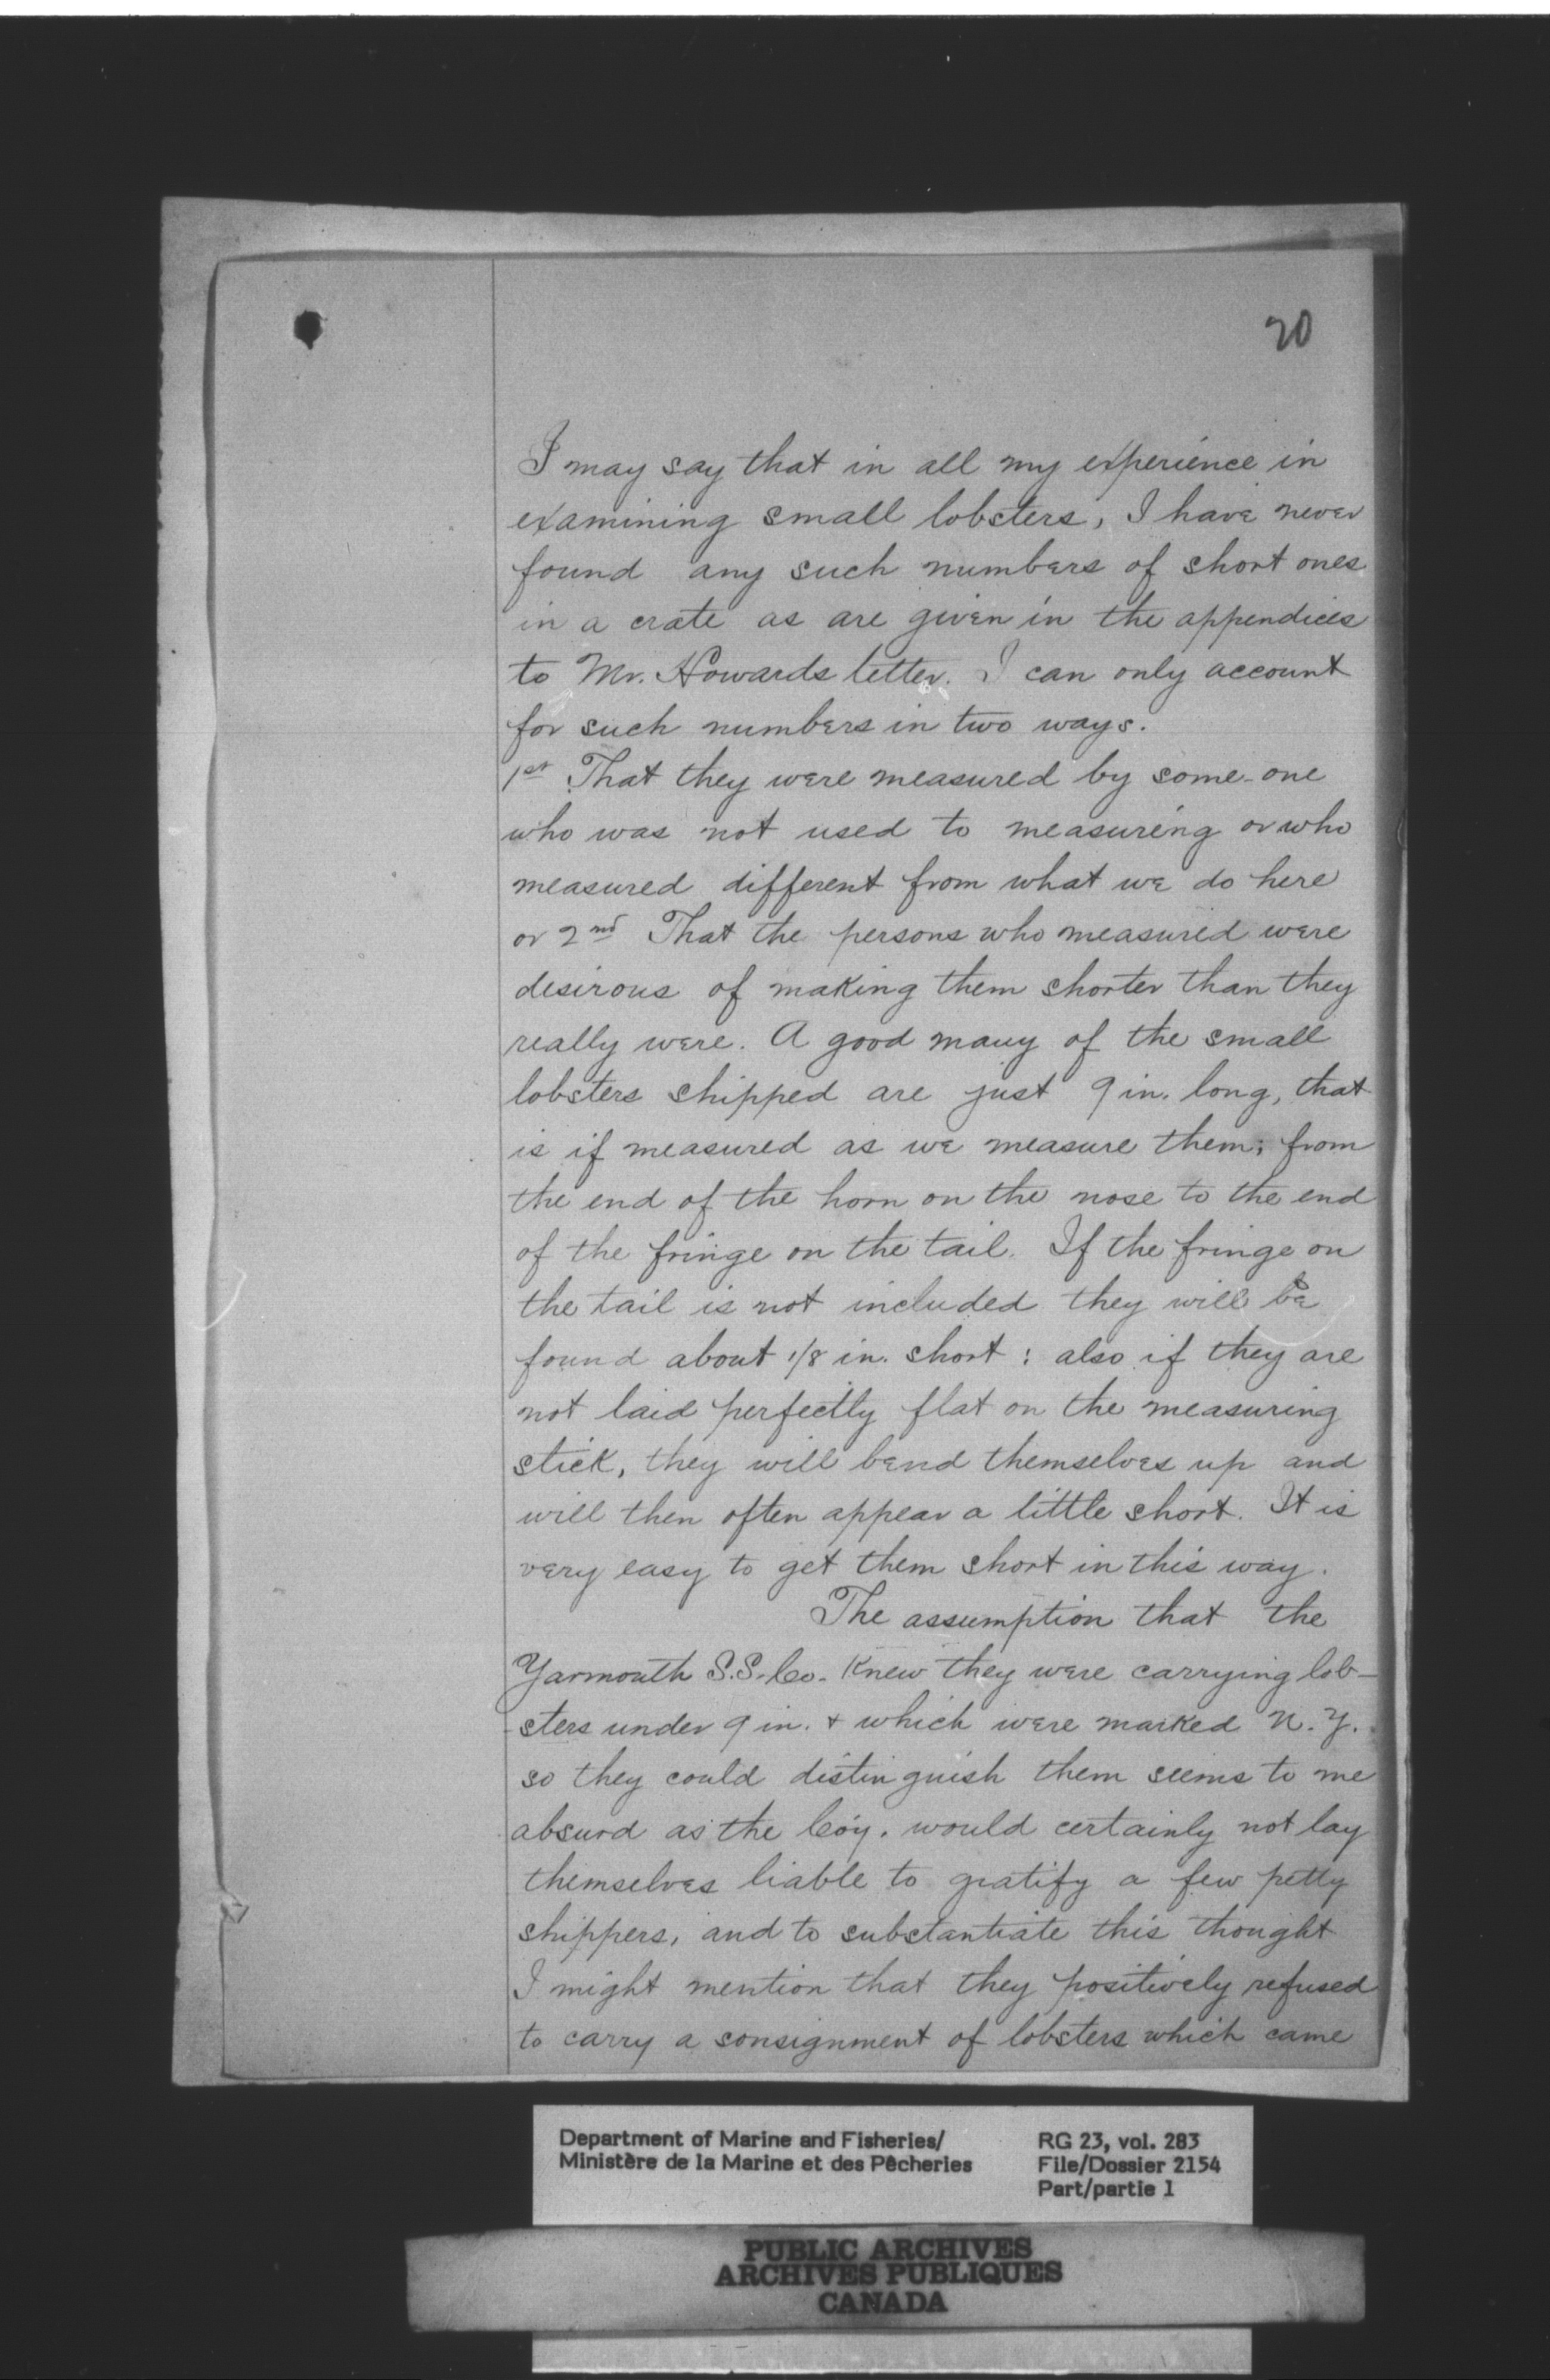 20
I may say that in all my experience in
examining small lobsters, I have never
found any such numbers of short ones
in a crate as are given in the appendices
to Mr. Howards letter. I can only account
for such numbers in two ways.
1st That they were measured by some-one
who was not used to measuring or who
measured different from what we do here
or 2nd That the persons who measured were
desirous of making them shorter than they
really were. A good many of the small
lobsters shipped are just 9 in. long, that
is if measured as we measure them; from
the end of the horn on the nose to the end
of the fringe on the tail. If the fringe on
the tail is not included they will be
found about 1/8 in. short: also if they are
not laid perfectly flat on the measuring
stick, they will bend themselves up and
will then often appear a little short. It is
very easy to get them short in this way.
The assumption that the
Yarmouth S.S. Co. knew they were carrying lob-
-sters under 9 in. & which were marked N.Y.
so they could distinguish them seems to me
absurd as the Coy. would certainly not lay
themselves liable to gratify a few petty
shippers, and to substantiate this thought
I might mention that they positively refused
to carry a consignment of lobsters which came
Department of Marine and Fisheries/
Ministère de la Marine et des Pêcheries
RG 23, vol. 283
File/Dossier 2154
Part/partie 1
PUBLIC ARCHIVES
ARCHIVES PUBLIQUES
CANADA